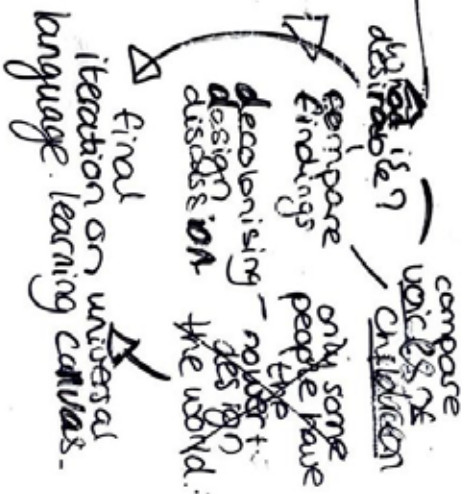 what is
desirable?
compare
voices of
children
compare
findings
only some
people have
the
power to
design
the world.
decolonising
design
discussion
final
iteration on universal
language learning canvas.